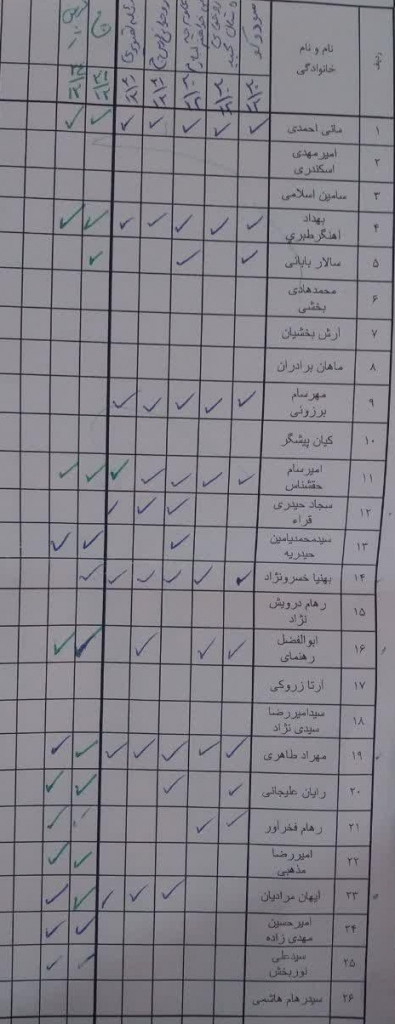 ردیف
نام و نام
خانوادگی
سودوکو
۱ مانی احمدی
۲ امیرمهدی
اسکندری
۳ سامین اسلامی
۴ بهداد
آهنگرطبری
۵ سالار بابائی
۶ محمدهادی
بخشی
۷ آرش بخشیان
۸ ماهان برادران
۹ مهرسام
برزونی
۱۰ کیان پیشگر
۱۱ امیرسام
حقشناس
۱۲ سجاد حیدری
قراء
۱۳ سیدمحمدیامین
حیدریه
۱۴ بهنیا خسرونژاد
۱۵ رهام درویش
نژاد
۱۶ ابوالفضل
رهنمای
۱۷ آرتا زروکی
۱۸ سیدامیررضا
سیدی نژاد
۱۹ مهراد طاهری
۲۰ رایان علیجانی
۲۱ رهام فخرآور
۲۲ امیررضا
مذهبی
۲۳ آیهان مرادیان
۲۴ امیرحسین
مهدی زاده
۲۵ سیدعلی
نوربخش
۲۶ سیدرهام هاشمی